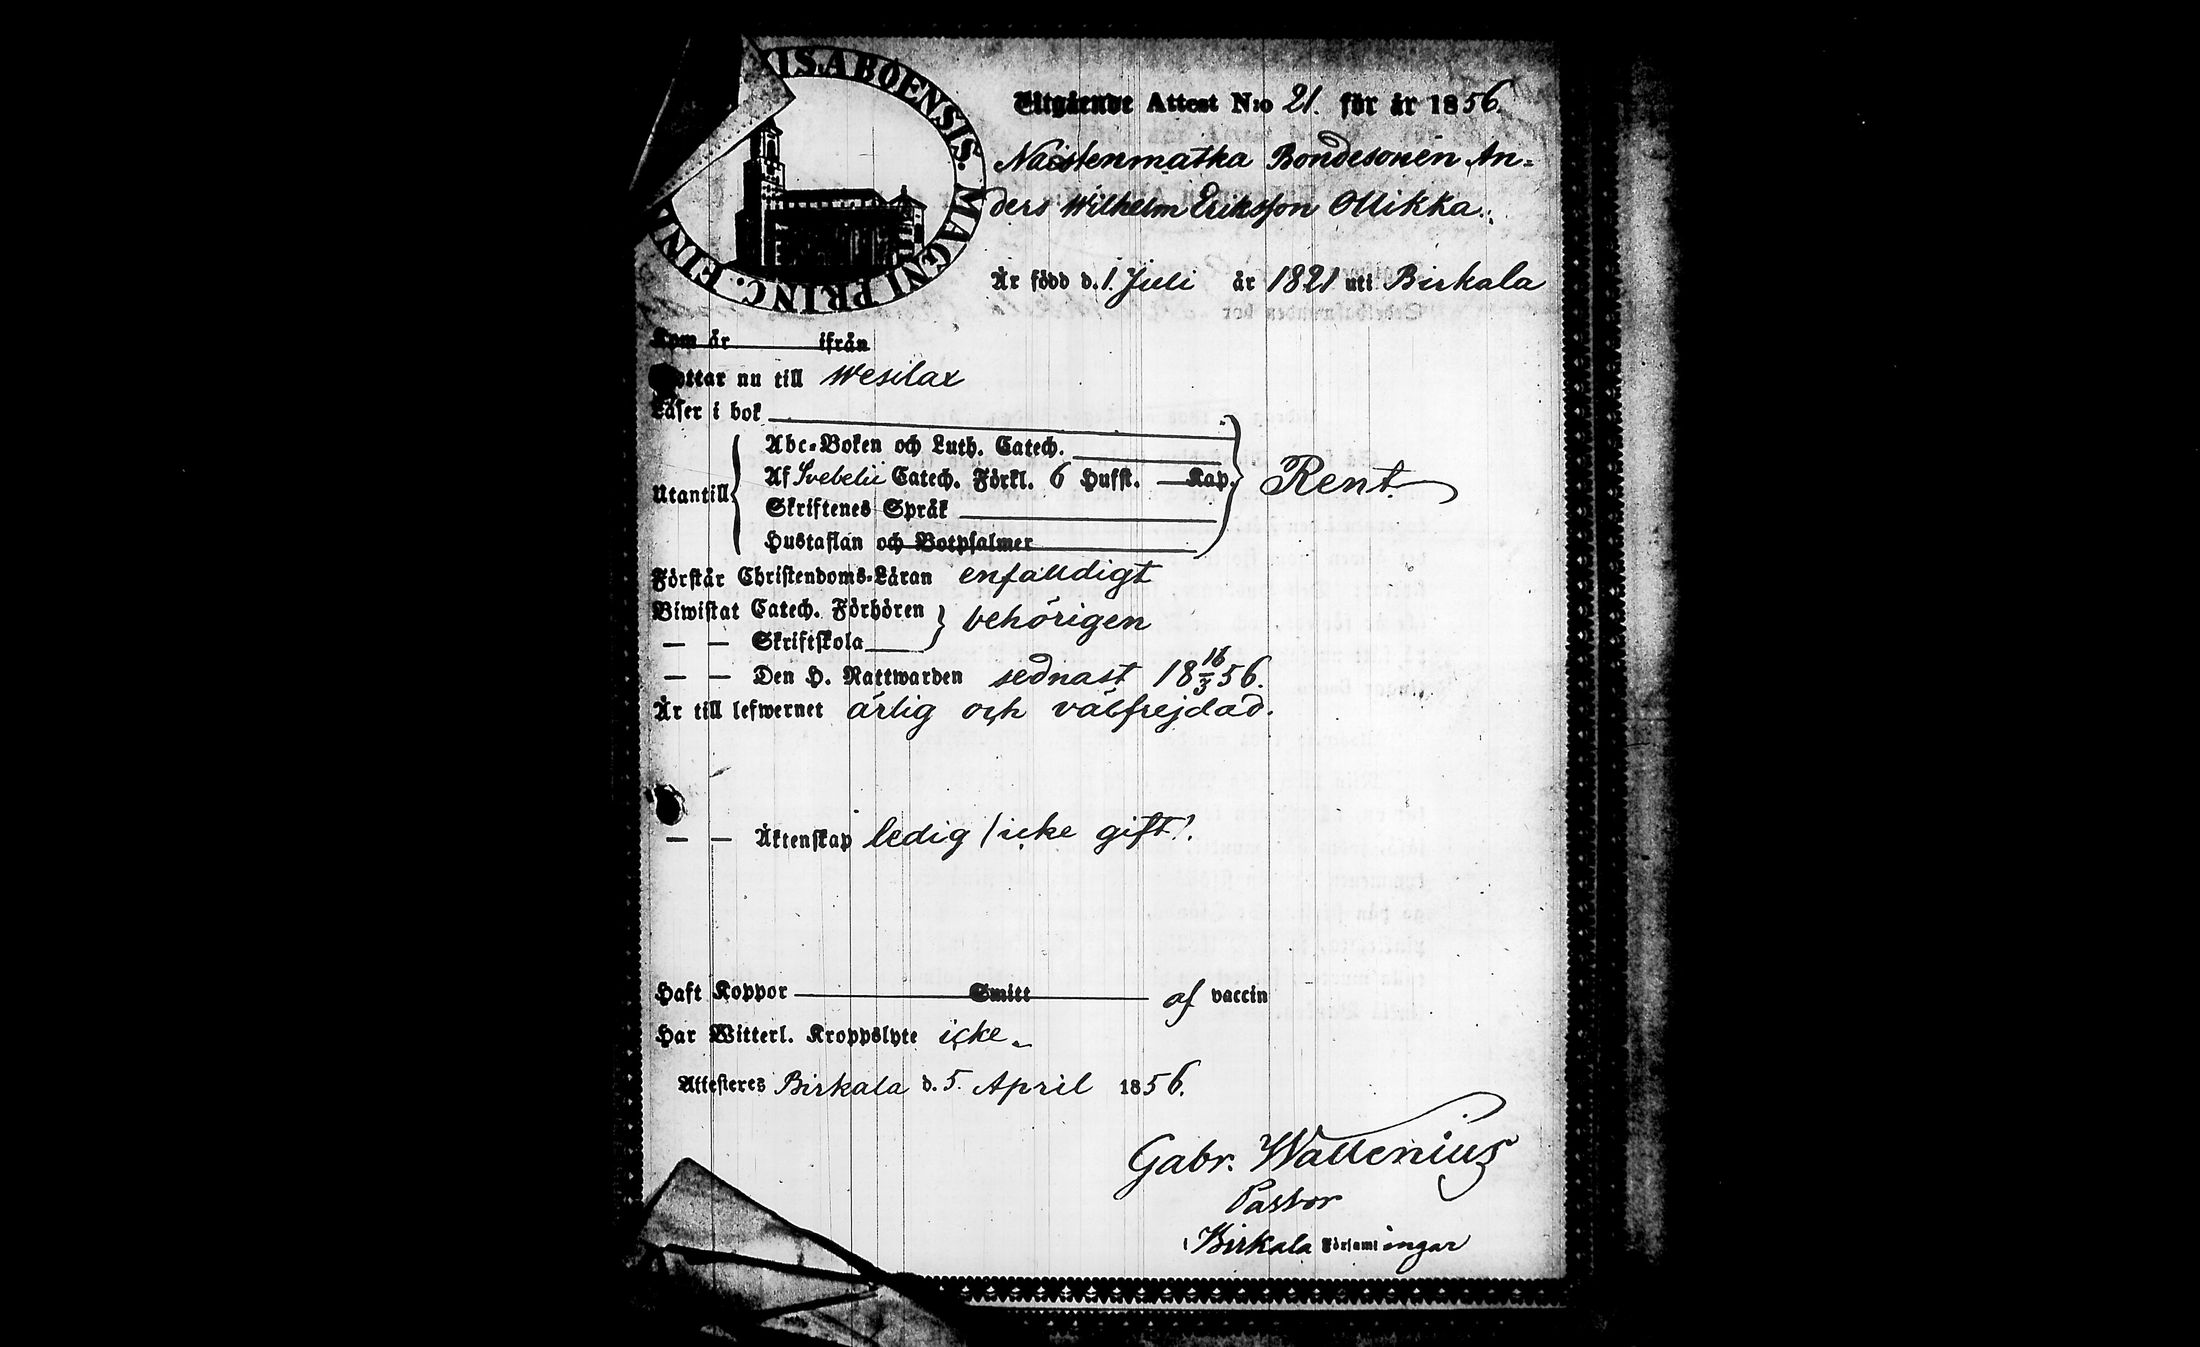 XIS.ABOENSIS. MAGNI PRINC. FINL
Utgående Attest N:o 21. för år 1856.
Naistenmatka Bondesonen An-
ders Wilhelm Eriksson Ollikka.
Är född d. 1. Juli år 1821 uti Birkala
Kom år ifrån
ottar nu till Wesilax
Läser i bok
Utantill
Abc-Boken och Luth. Catech.
Af Svebelii Catech. Förkl. 6 Hufst. Kap.
Skriftenes Språk
Hustaflan och Botpsalmer
Rent.
Förstår Christendoms-Läran enfalldigt
Biwistat Catech. Förhören
— — Skriftskola
behörigen
— — Den H. Nattwarden sednast 18 16/3 56.
Är till lefwernet ärlig och välfrejdad.
— — Äktenskap ledig /icke gift/.
Haft Koppor Smitt af vaccin
Har Witterl. Kroppslyte icke.
Attesteres Birkala d. 5. April 1856.
Gabr. Wallenius
Pastor
i Birkala Församlingar